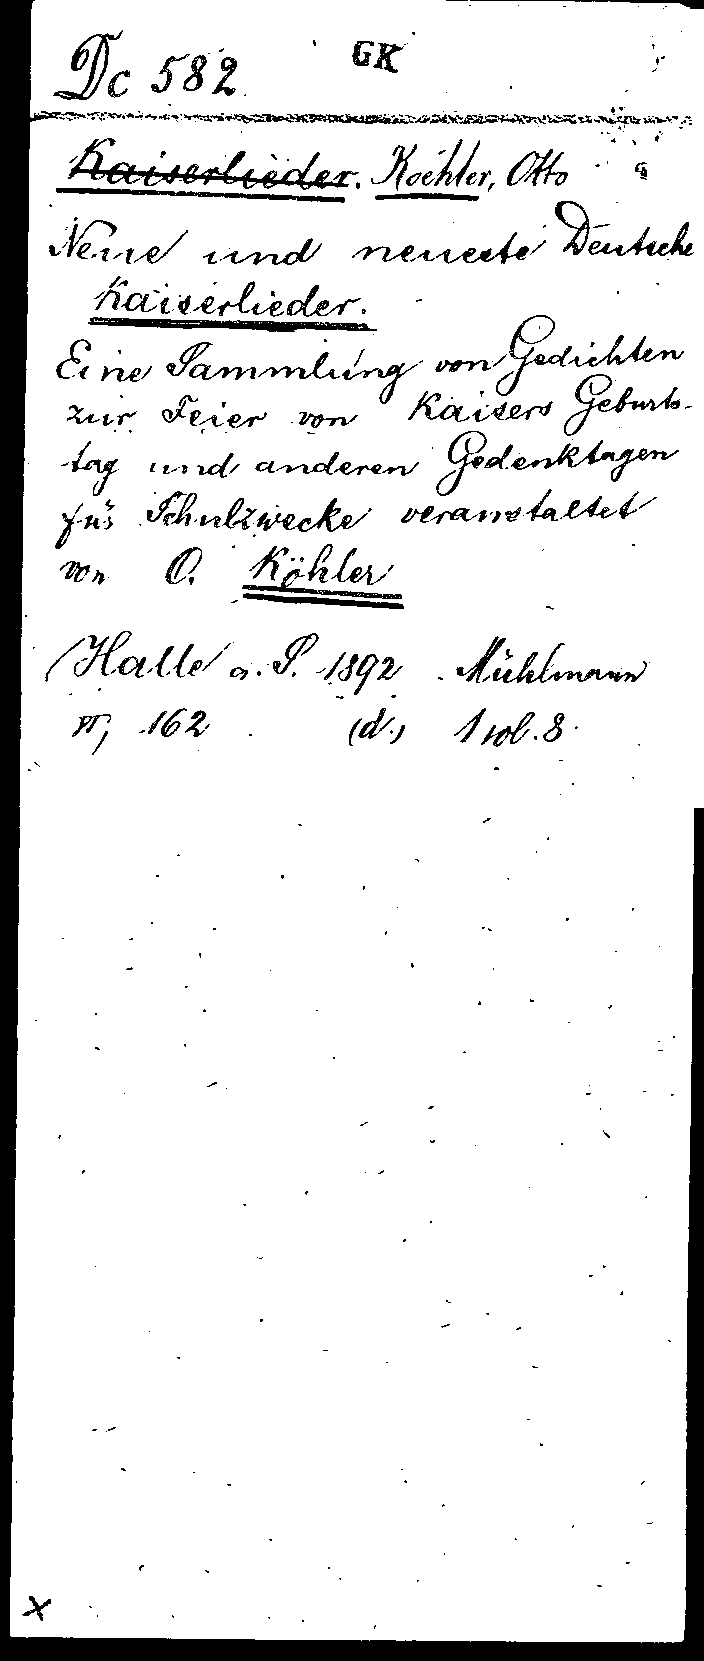 Dc 582 GK
Kaiserlieder. Koehler, Otto
Neue und neueste Deutsche
Kaiserlieder.
Eine Sammlung von Gedichten
zur Feier von Kaisers Geburts-
tag und anderen Gedenktagen
für Schulzwecke veranstaltet
von O. Köhler
Halle a. S. 1892 Mühlmann
VI, 162 (d.) 1 vol. 8
x